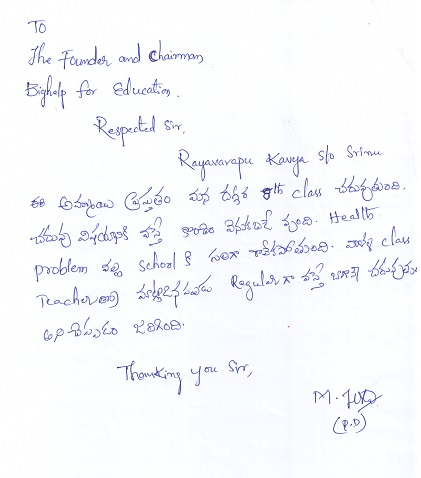 To
The Founder and Chairman,
Bighelp for Education.
Respected Sir,
Rayavarapu Kavya S/o Srinu
ఈ అమ్మాయి ప్రస్తుతం మన దగ్గర 8th class చదువుతుంది.
చదువు విషయానికి వస్తే కొంచెం వెనుకబడే వుంది. Health
problem వల్ల School కి సరిగా రాలేకపోతుంది. వాళ్ళ class
Teacher తో మాట్లాడినపుడు Regular గా వస్తే బాగానే చదువుతుం
అని చెప్పడం జరిగింది.
Thanking you Sir,
M.
(P.D)